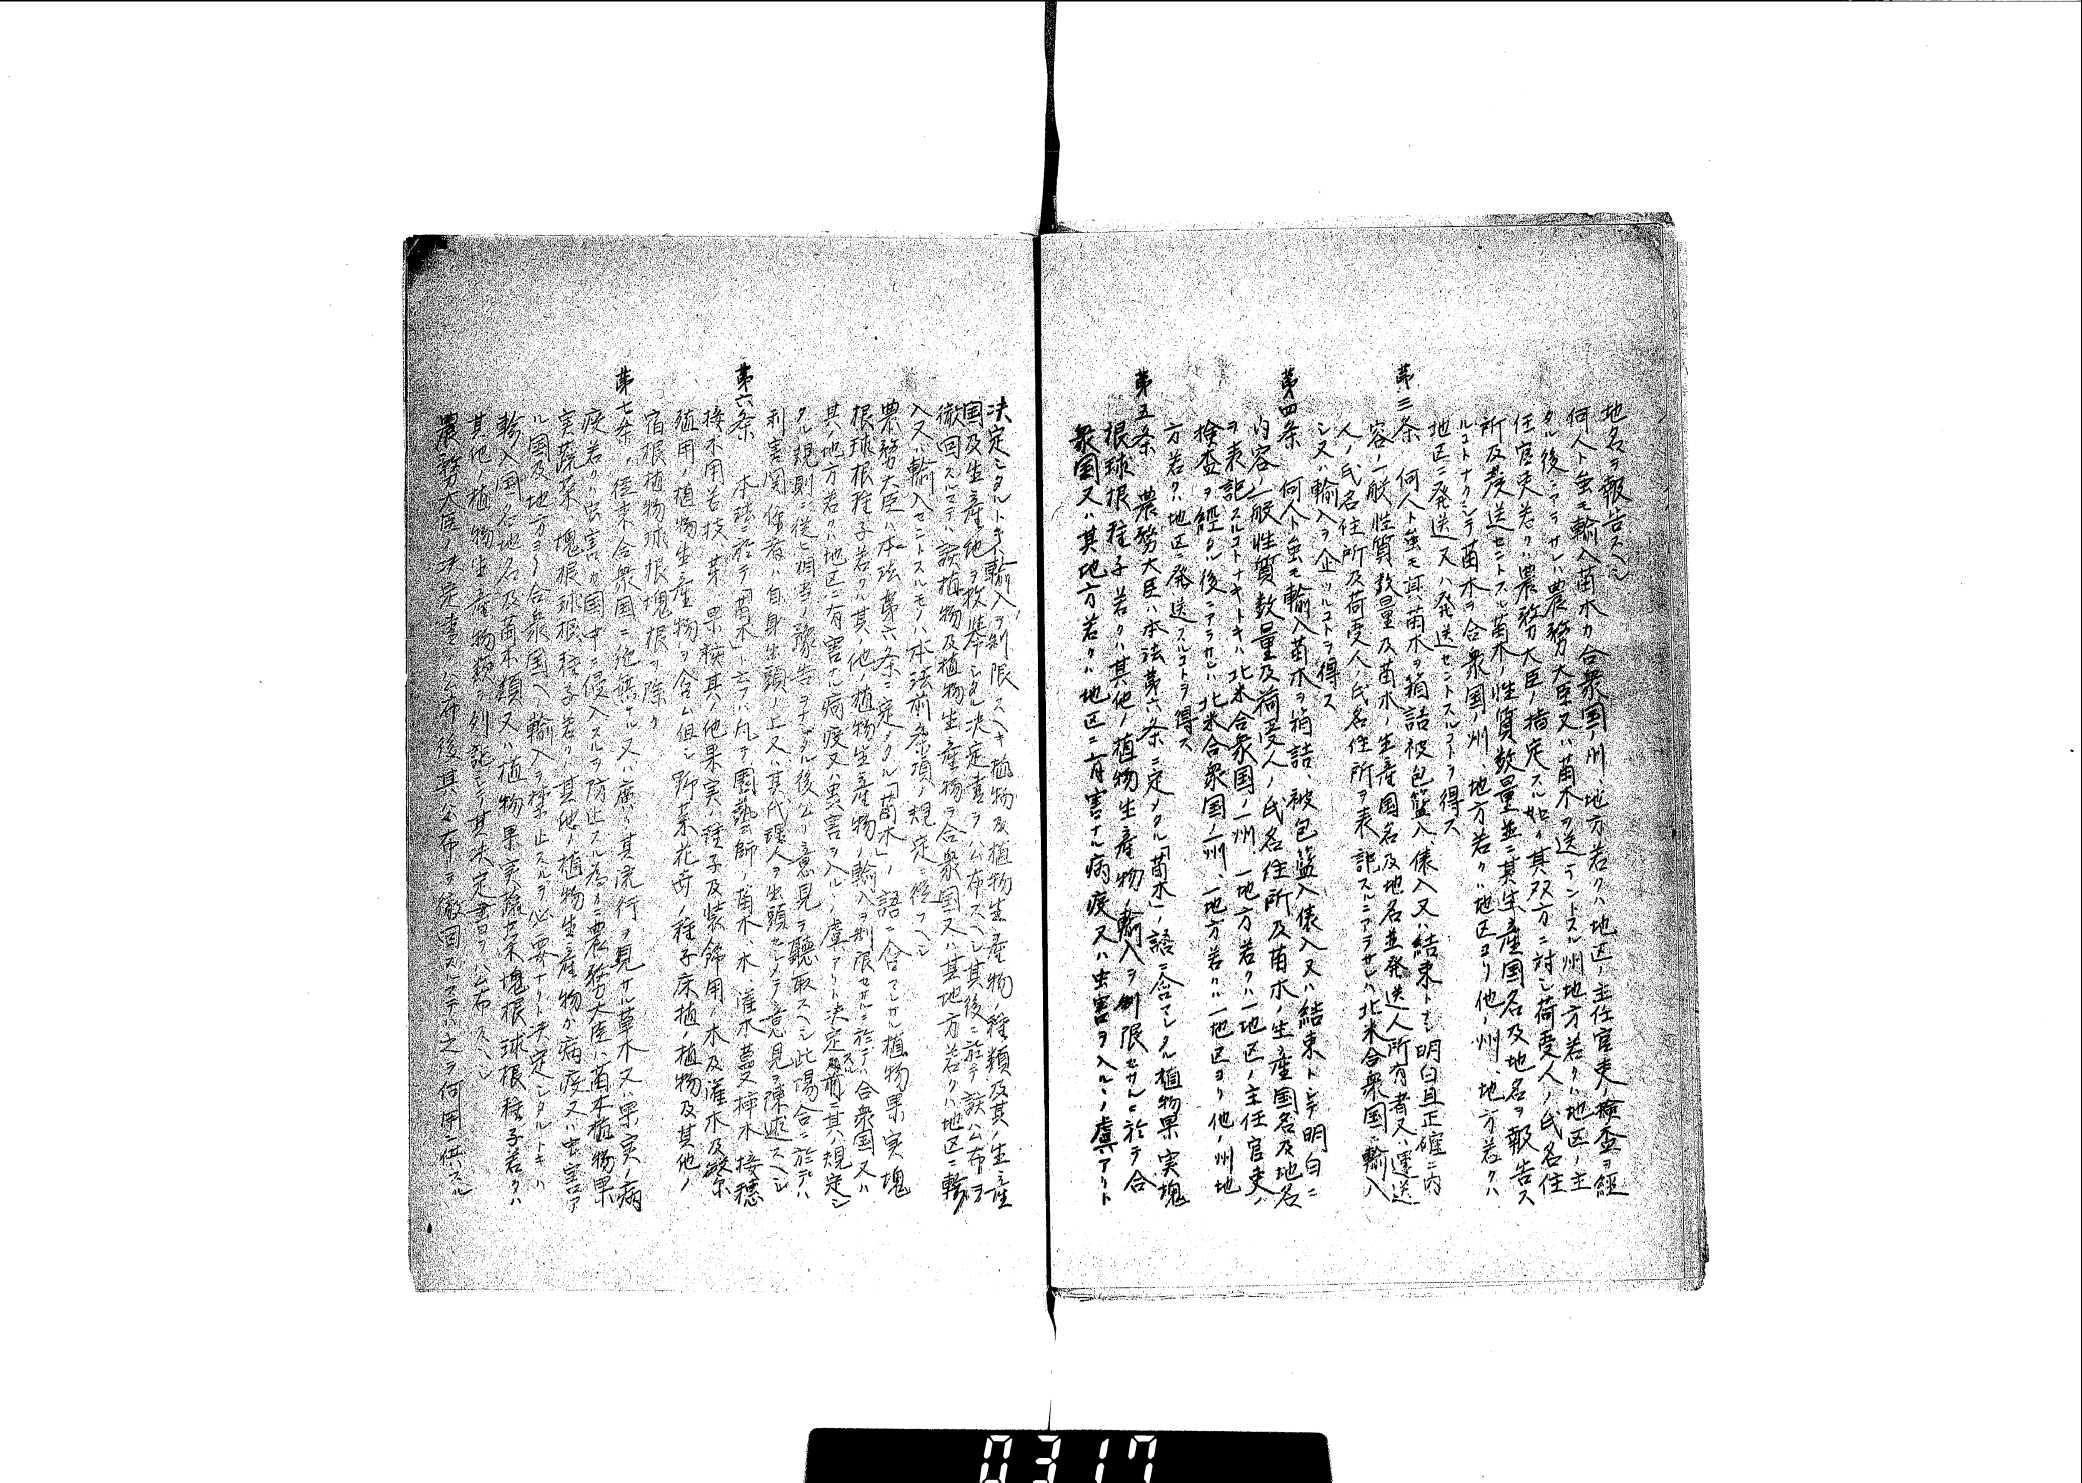 地名ヲ報告スヘシ
何人ト虽モ輸入苗木カ合衆国ノ州、地方若クハ地区ノ主任官吏ノ検査ヲ経
タル後ニアラサレハ農務大臣又ハ苗木ヲ送ラントスル州地方若クハ地区ノ主
任官吏若クハ農務大臣ノ指定スル如ク其双方ニ対シ荷受人ノ氏名住
所及発送セントスル苗木ノ性質数量並ニ其生産国名及地名ヲ報告ス
ルコトナクシテ苗木ヲ合衆国ノ州、地方若クハ地区ヨリ他ノ州、地方若クハ
地区ニ発送又ハ発送セントスルコトヲ得ス
第三条 何人ト虽モ其苗木ヲ箱詰被包籃入、俵入又ハ結束トシ明白且正確ニ内
容ノ一般性質数量及苗木ノ生産国名及地名並発送人所有者又ハ運送
人ノ氏名住所及荷受人ノ氏名住所ヲ表記スルニアラサレハ北米合衆国ニ輸入
シ又ハ輸入ヲ企ツルコトヲ得ス
第四条 何人ト虽モ輸入苗木ヲ箱詰、被包籃入俵入又ハ結束トシテ明白ニ
内容ノ一般性質数量及荷受人ノ氏名住所及苗木ノ生産国名及地名
ヲ表記スルコトナキトキハ北米合衆国ノ一州、一地方若クハ一地区ノ主任官吏ノ
検査ヲ経タル後ニアラサレハ北米合衆国ノ一州、一地方若クハ一地区ヨリ他ノ州地
方若クハ地区ニ発送スルコトヲ得ス
第五条 農務大臣ハ本法第六条ニ定メタル「苗木」ノ語ニ含マレタル植物果実塊
根球根種子若クハ其他ノ植物生産物ノ輸入ヲ制限セサルニ於テ合
衆国又ハ其地方若クハ地区ニ有害ナル病疫又ハ虫害ヲ入ルヽノ虞アリト
決定シタルトキハ輸入ヲ制限スヘキ植物及植物生産物種類及其ノ生産
国及生産地ヲ枚挙シタル決定書ヲ公布スヘシ其後ニ於テ該公布ヲ
徹回スルマテハ該植物及植物生産物ヲ合衆国又ハ其地方若クハ地区ニ輸
入又ハ輸入セントスルモノハ本法前条項ノ規定ニ従フヘシ
農務大臣ハ本法第六条ニ定メタル「苗木」ノ語ニ含マレサル植物果実塊
根球根種子若クハ其ノ他ノ植物生産物ノ輸入ヲ制限セサルニ於テハ合衆国又ハ
其ノ地方若クハ地区ニ有害ナル病疫又ハ虫害ヲ入ルヽノ虞アリト決定スル前ニ其ハ規定シ
タル規則ニ従ヒ相当ノ豫告ヲナシタル後公ノ意見ヲ聽取スヘシ此場合ニ於テハ
利害関係者ハ自身出頭ノ上又ハ其代理人ヲ出頭セシメテ意見ヲ陳述スヘシ
第六条 本法ニ於テ「苗木」ト云フハ凡テ園藝師ノ苗木、木、灌木蔓又挿木、接穂
接木用若枝、芽、果核其ノ他果実ノ種子及装飾用ノ木及灌木及繁
殖用ノ植物生産物ヲ含ム但シ野菜花卉ノ種子床植植物及其他ノ
宿根植物球根塊根ヲ除ク
第七条 従来合衆国ニ絶無ナル又ハ廣ク其流行ヲ見サル草木又ハ果実ノ病
疫若クハ虫害カ国中ニ侵入スルヲ防止スル為メニ農務大臣ハ苗木植物果
実蔬菜、塊根球根種子若クハ其他ノ植物生産物カ病疫又ハ虫害ア
ル国及地方ヨリ合衆国ヘ輸入ヲ禁止スルヲ必要ナリト決定シタルトキハ
輸入国名地名及苗木類又ハ植物果実蔬菜塊根、球根種子若クハ
其他ノ植物生産物類ヲ列記シテ其決定書ヲ公布スヘシ
農務大臣ノ決定書ハ公布後其公布ヲ徹回スルマテハ之ヲ
0317